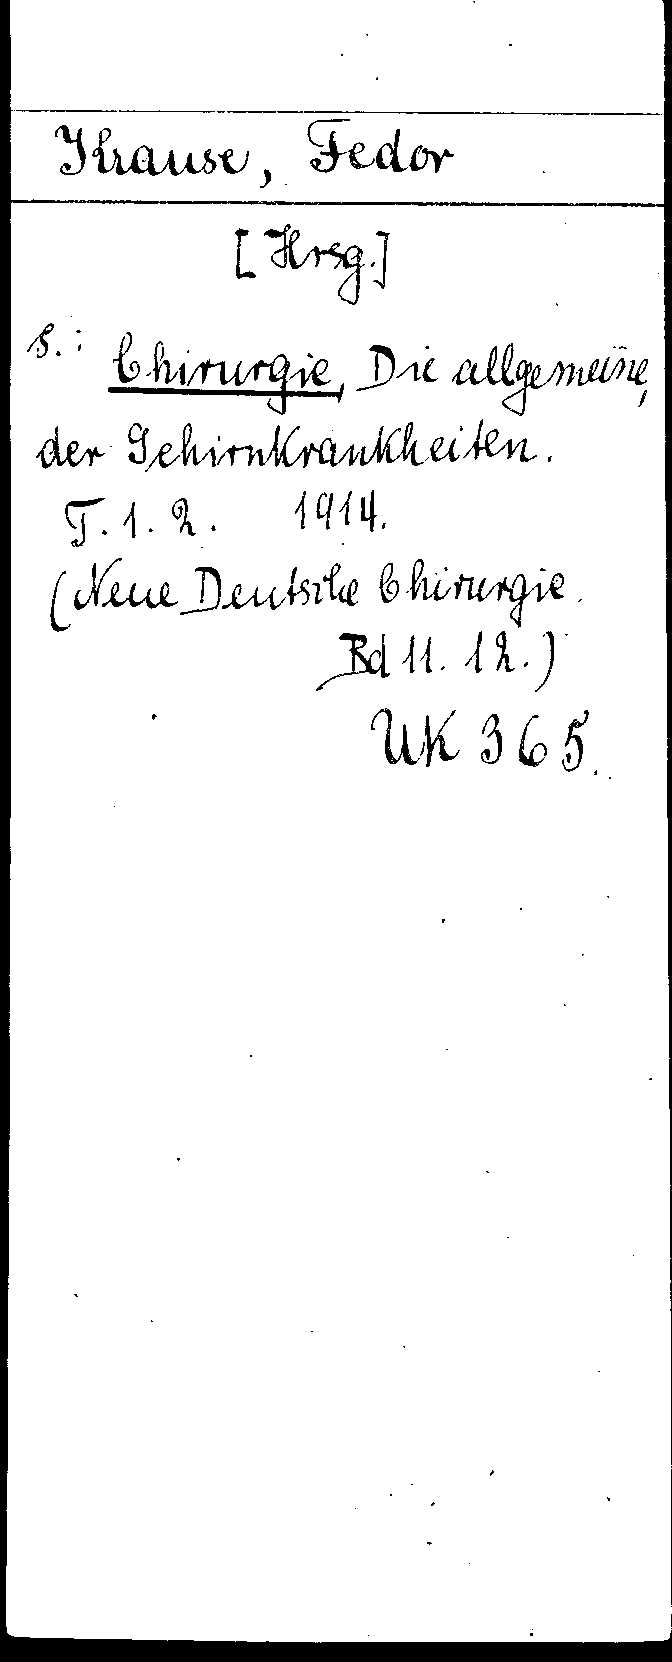 Krause, Fedor
[Hrsg.]
s.: Chirurgie, Die allgemeine,
der Gehirnkrankheiten.
T. 1. 2. 1914.
(Neue Deutsche Chirurgie.
Bd 11. 12.)
UK 365.